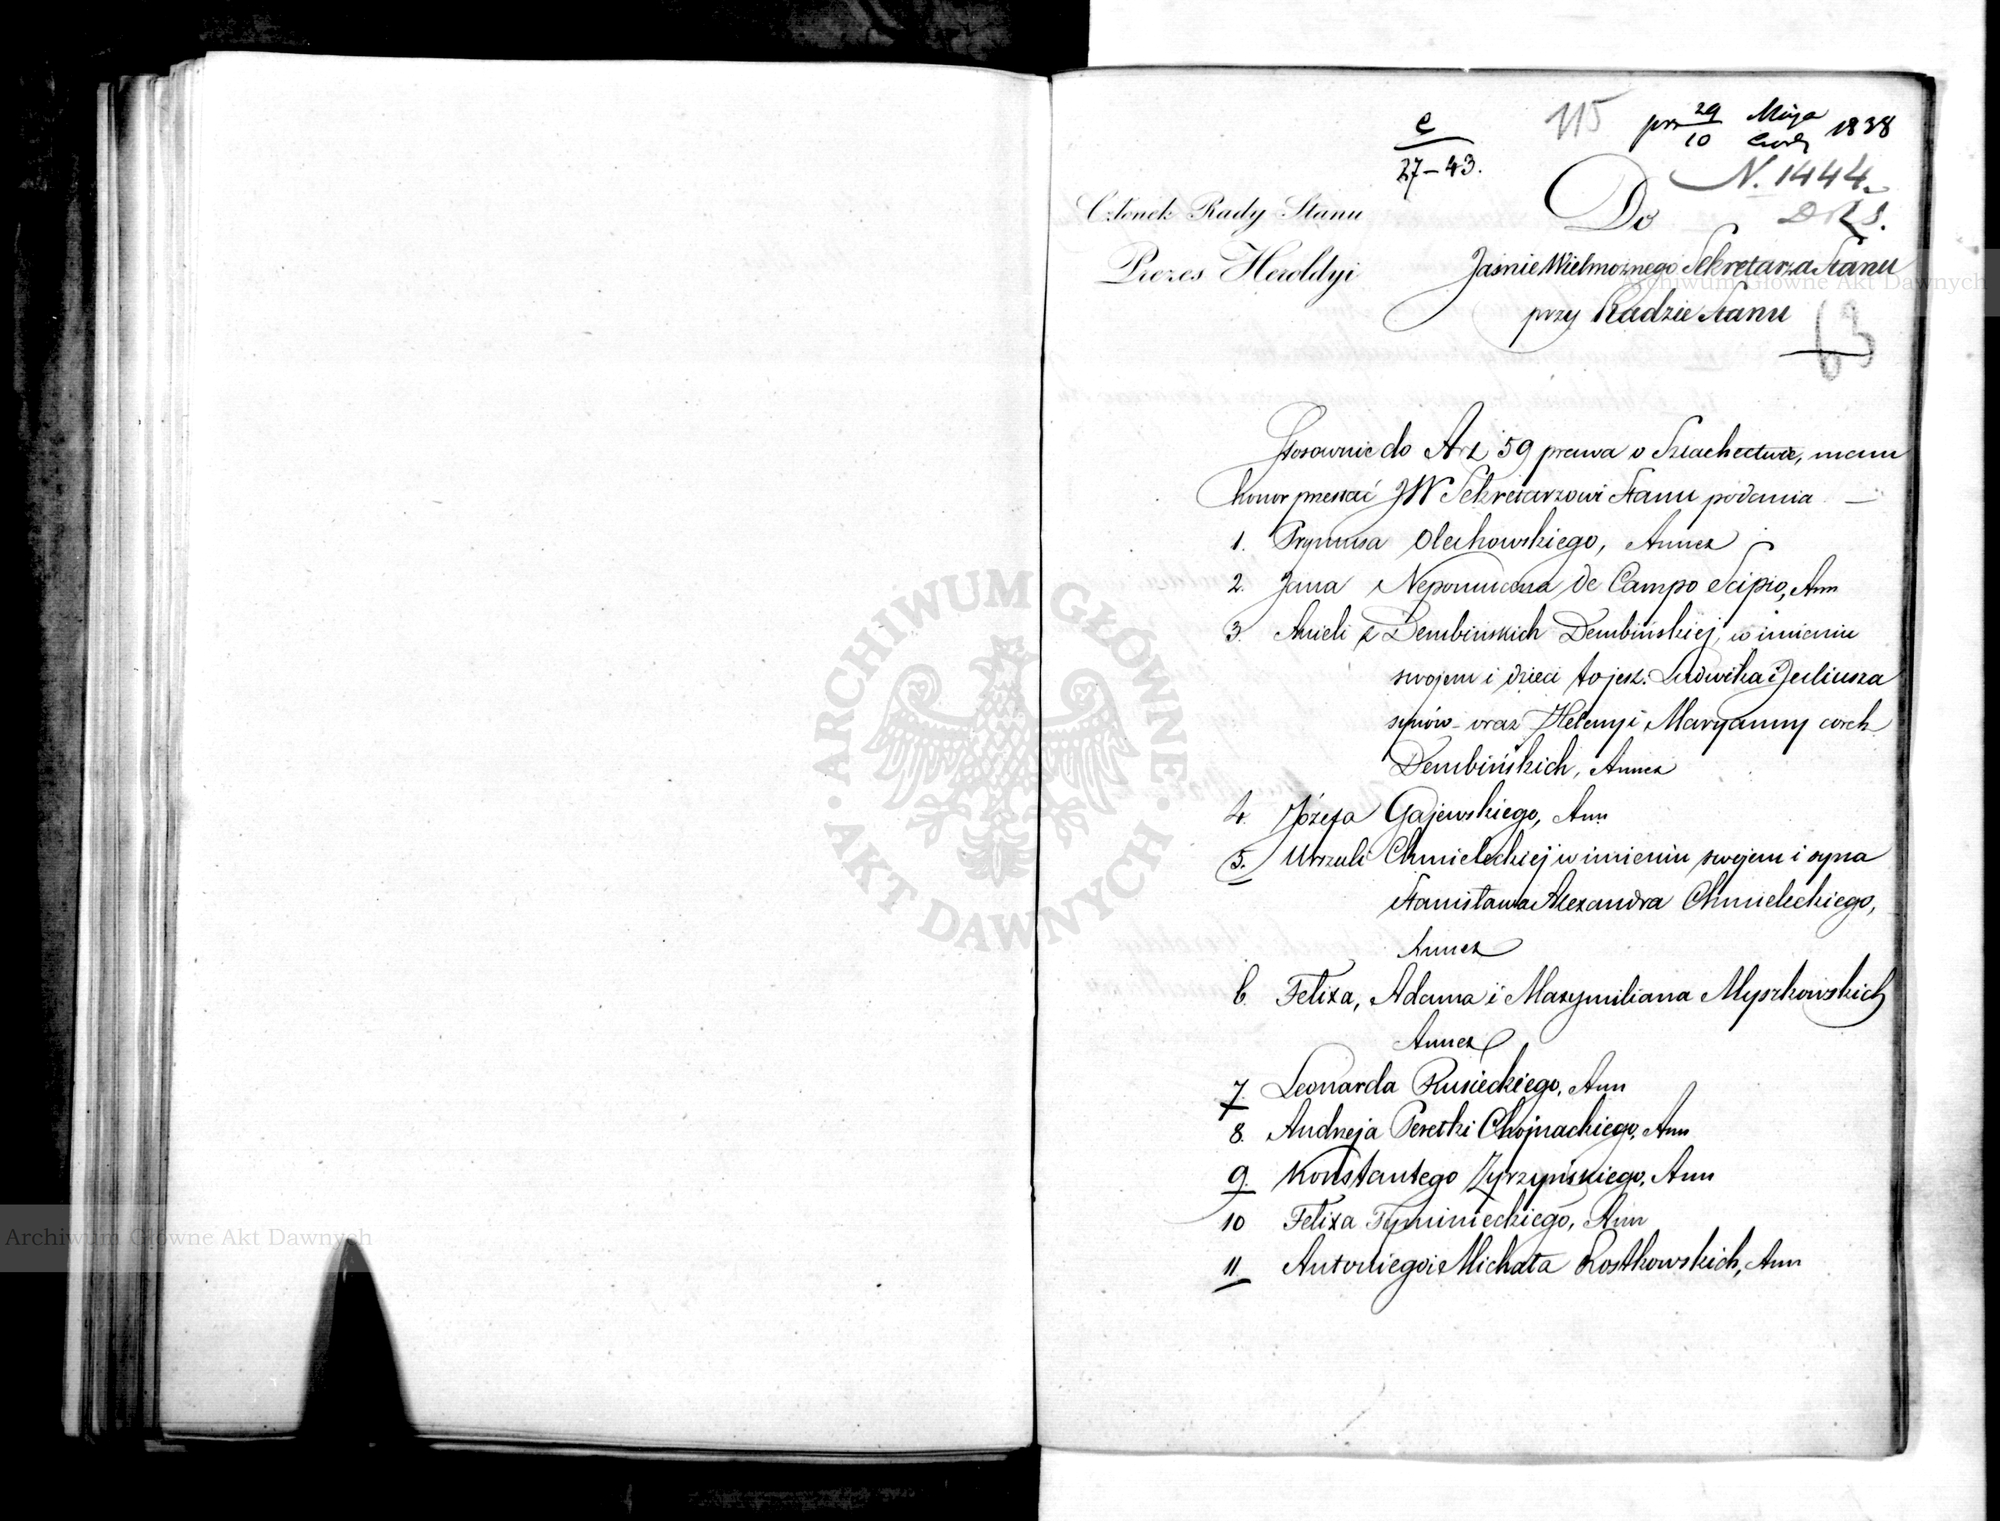 e
27-43.
115
prz 29/10 Maja Czerw 1838
N. 1444.
D R S.
Członek Rady Stanu
Prezes Heroldyi
Do
Jaśnie Wielmożnego Sekretarza Stanu
przy Radzie Stanu
63
Stosownie do Art 59 prawa o Szlachectwie, mam
honor przesłać JW Sekretarzowi Stanu podania —
1. Prymusa Olechowskiego, Annex
2. Jana Nepomucena de Campo Scipio, Ann
3. Anieli z Dembińskich Dembińskiej, w imieniu
swojem i dzieci to jest: Ludwika i Juliusza
synów - oraz Heleny i Maryanny córek
Dembińskich, Annex
4. Józefa Gajewskiego, Ann
5. Urszuli Chmieleckiej w imieniu swojem i syna
Stanisława Alexandra Chmieleckiego,
Annex
6. Felixa, Adama i Maxymiliana Myszkowskich
Annex
7. Leonarda Rusieckiego, Ann
8. Andrzeja Peretki Chojnackiego, Ann
9. Konstantego Zyrzyńskiego, Ann
10 Felixa Tyminieckiego, Ann
11. Antoniego i Michała Rostkowskich, Ann
Archiwum Główne Akt Dawnych
Archiwum Główne Akt Dawnych
ARCHIWUM GŁÓWNE
AKT DAWNYCH